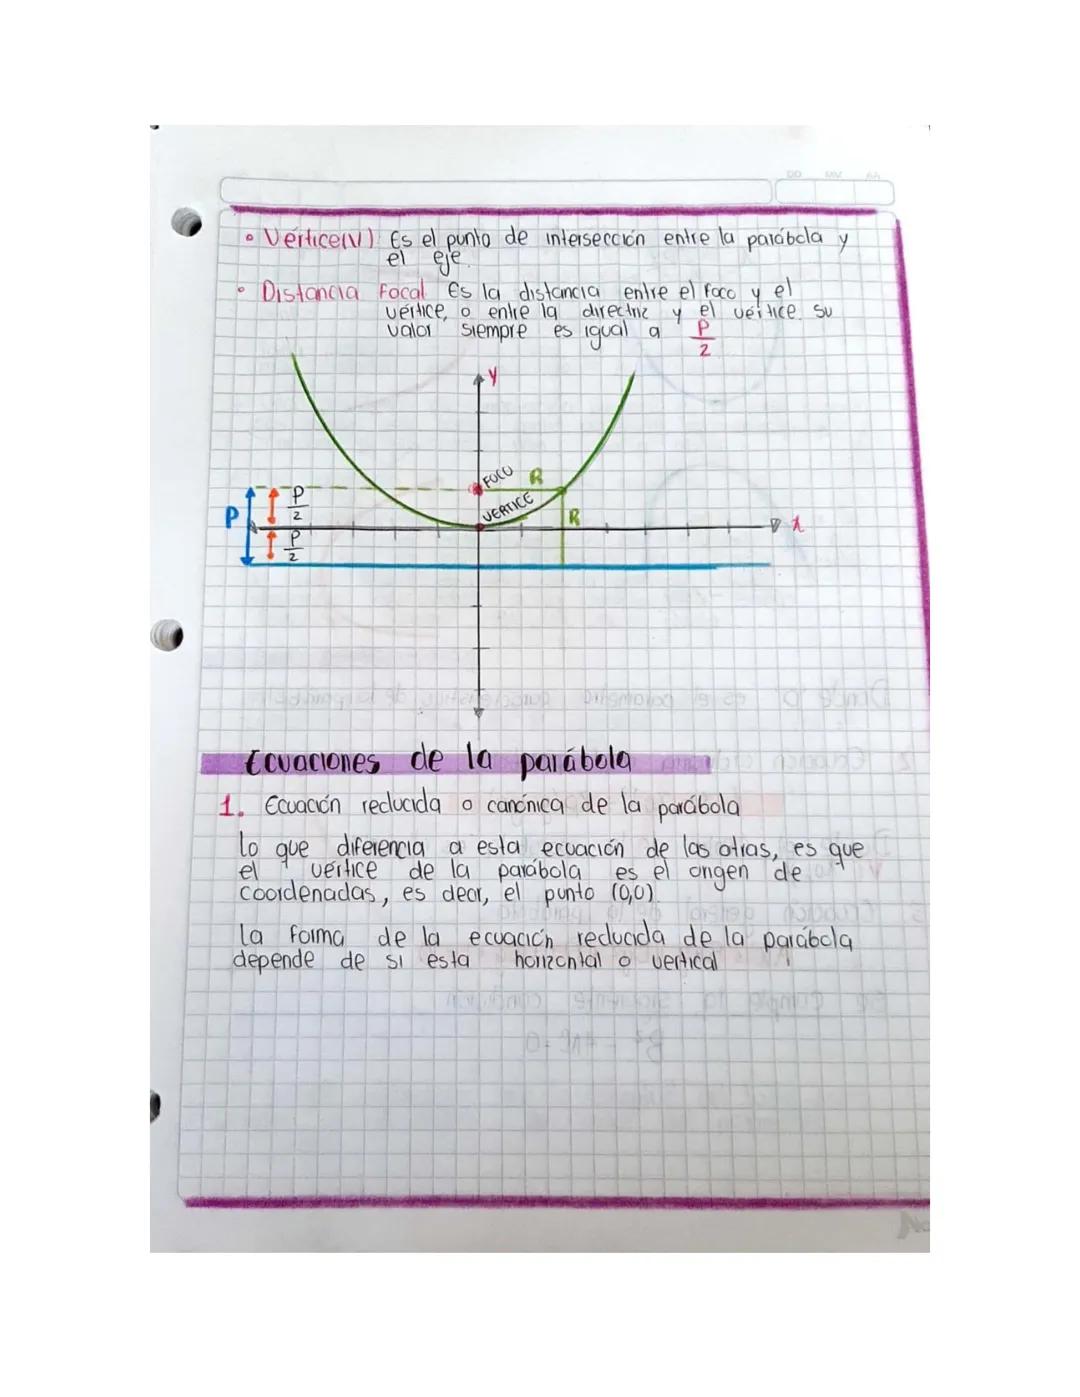 DD MM AA
• Vértice(V) Es el punto de intersección entre la parábola y
el eje.
• Distancia Focal Es la distancia entre el Foco y el
vértice, o entre la directriz y el vértice. su
valor siempre es igual a P/2
Y
FOCO R
VERTICE
R
x
P
P/2
P/2
Ecuaciones de la parábola
1. Ecuación reducida o canónica de la parábola
lo que diferencia a esta ecuación de las otras, es que
el vértice de la parábola es el origen de
coordenadas, es decir, el punto (0,0).
La forma de la ecuación reducida de la parábola
depende de si esta horizontal o vertical